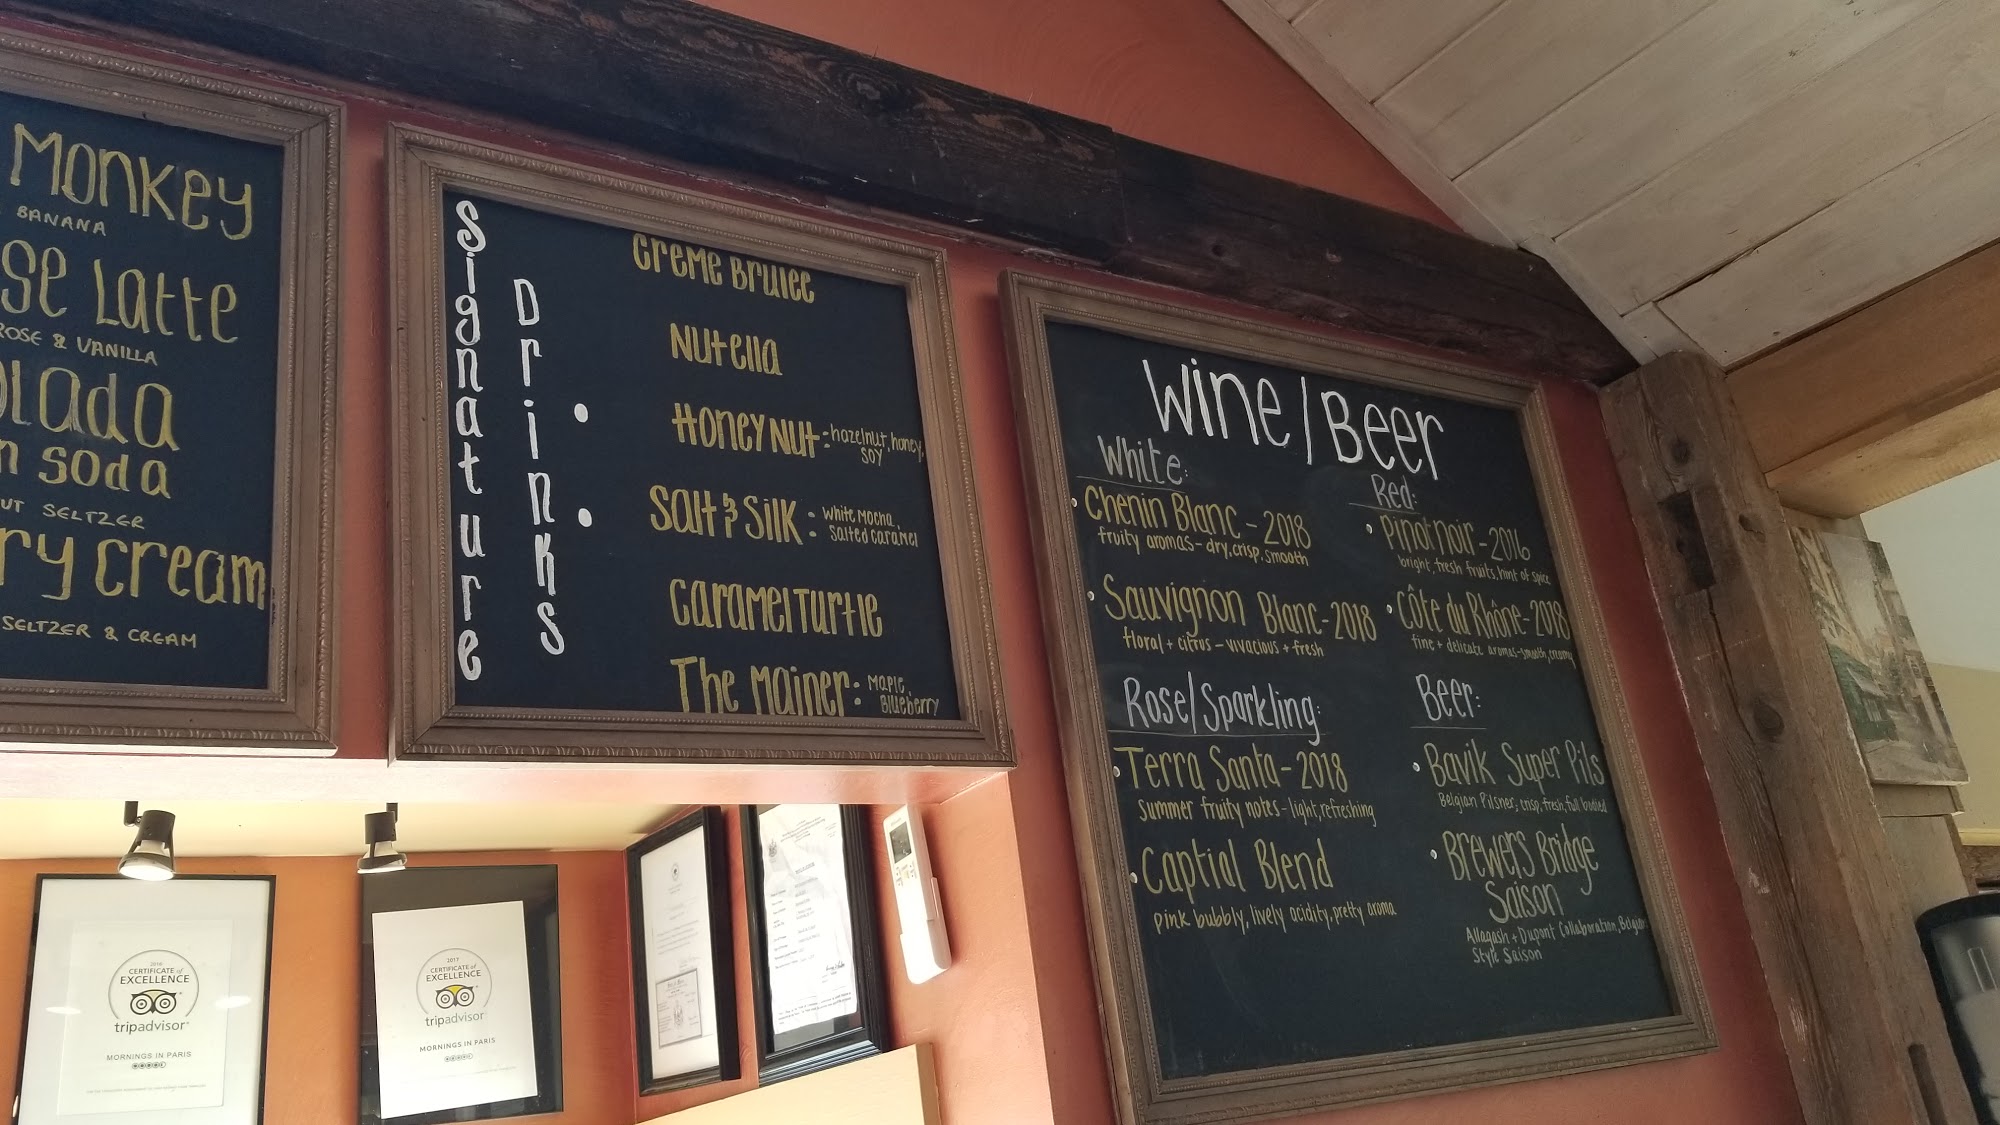 Monkey
BANANA
se Latte
ROSE & VANILLA
olada
n soda
UT SELTZER
ry cream
SELTZER & CREAM
Signature
Drinks
Creme Brulee
Nutella
Honey Nut - hazelnut, honey,
soy
Salt & Silk : white mocha,
salted caramel
Caramel Turtle
The Mainer : maple,
Blueberry
Wine/Beer
White:
Chenin Blanc - 2018
fruity aromas - dry, crisp, smooth
Sauvignon Blanc - 2018
floral + citrus - vivacious + fresh
Rose/Sparkling:
Terra Santa - 2018
summer fruity notes - light, refreshing
Captial Blend
pink bubbly, lively acidity, pretty aroma
Red:
Pinot noir - 2016
bright, fresh fruits, hint of spice
Côte du Rhône - 2018
fine + delicate aromas - smooth, creamy
Beer:
Bavik Super Pils
Belgian Pilsner, crisp, fresh, full bodied
Brewers Bridge
Saison
Allagash + Dupont Collaboration, Belgian
Style Saison
2016
CERTIFICATE of
EXCELLENCE
tripadvisor®
MORNINGS IN PARIS
2017
CERTIFICATE of
EXCELLENCE
tripadvisor®
MORNINGS IN PARIS